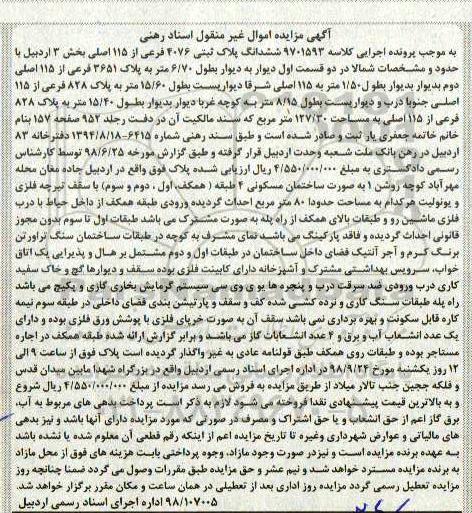 آگهی مزایده اموال غیر منقول اسناد رهنی
به موجب پرونده اجرایی کلاسه ۹۷۰۱۵۹۳ ششدانگ پلاک ثبتی ۴۰۷۶ فرعی از ۱۱۵ اصلی بخش ۳ اردبیل با
حدود و مشخصات شمالا در دو قسمت اول دیوار به دیوار بطول ۶/۷۰ متر به پلاک ۳۶۵۱ فرعی از ۱۱۵ اصلی
دوم بدیوار بدیوار بطول ۱/۵۰ متر به ۱۱۵ اصلی شرقا دیواریست بطول ۱۵/۶۰ متر به پلاک ۸۲۸ فرعی از ۱۱۵
اصلی جنوبا درب و دیواریست بطول ۸/۱۵ متر به کوچه غربا دیوار بدیوار بطول ۱۵/۴۰ متر به پلاک ۸۲۸
فرعی از ۱۱۵ اصلی به مساحت ۱۲۷/۳۰ متر مربع که سند مالکیت آن در دفتر جلد ۹۵۲ صفحه ۱۵۷ بنام
خانم خاتمه جعفری یار ثبت و صادر شده است و طبق سند رهنی شماره ۶۴۱۵-۱۳۹۴/۸/۱۸ دفترخانه ۸۳
اردبیل در رهن بانک ملت شعبه وحدت اردبیل قرار گرفته و طبق گزارش مورخه ۹۸/۶/۲۵ توسط کارشناس
رسمی دادگستری به مبلغ ۴/۵۵۰/۰۰۰/۰۰۰ ریال ارزیابی شده پلاک فوق واقع در اردبیل جاده مغان محله
مهرآباد کوچه روشن ۱ به صورت ساختمان مسکونی ۴ طبقه (همکف، اول، دوم و سوم) با سقف تیرچه فلزی
و یونولیت هر کدام به مساحت حدودا ۸۰ متر مربع احداث گردیده ورودی طبقه همکف از داخل حیاط با درب
فلزی ماشین رو و طبقات بالای همکف از راه پله به صورت مشترک می باشد طبقات اول تا سوم بدون مجوز
قانونی احداث گردیده و فاقد پارکینگ می باشد نمای مشرف به کوچه در طبقات ساختمان سنگ تراورتن
برنگ کرم و آجر آنتیک فضای داخل ساختمان در طبقات اول و دوم مشتمل بر هال و پذیرایی یک اتاق
خواب، سرویس بهداشتی مشترک و آشپزخانه دارای کابینت فلزی بوده سقف و دیوارها گچ و خاک سفید
کاری درب ورودی ضد سرقت درب و پنجره ها یو پی وی سی سیستم گرمایش بخاری گازی و پکیج می باشد
راه پله طبقات سنگ کاری و نرده کشی شده کف و سقف و پارتیشن بندی فضای داخلی در طبقه سوم نیمه
کاره قابل سکونت و بهره برداری نمی باشد سقف آن به صورت خرپای فلزی با پوشش ورق فلزی بوده و دارای
یک عدد انشعاب آب و برق و ۴ عدد انشعابات گاز می باشد و برابر گزارش ارائه شده طبقه همکف در اجاره
مستاجر بوده و طبقات روی همکف طبق قولنامه عادی به غیر واگذار گردیده است پلاک فوق از ساعت ۹ الی
۱۲ روز یکشنبه مورخ ۹۸/۹/۲۴ در اداره اجرای اسناد رسمی اردبیل واقع در بزرگراه شهدا مابین میدان قدس
و فلکه ججین جنب تالار میلاد از طریق مزایده به فروش می رسد مزایده از مبلغ ۴/۵۵۰/۰۰۰/۰۰۰ ریال شروع
و به بالاترین قیمت پیشنهادی نقدا فروخته می شود لازم به ذکر است پرداخت بدهی های مربوط به آب،
برق گاز اعم از حق انشعاب و یا حق اشتراک و مصرف در صورتی که مورد مزایده دارای آنها باشد و نیز بدهی
های مالیاتی و عوارض شهرداری وغیره تا تاریخ مزایده اعم از اینکه رقم قطعی آن معلوم شده یا نشده باشد
به عهده برنده مزایده است و نیز در صورت وجود مازاد، وجوه پرداختی بابت هزینه های فوق از محل مازاد
به برنده مزایده مسترد خواهد شد و نیم عشر و حق مزایده طبق مقررات وصول می گردد ضمنا چنانچه روز
مزایده تعطیل رسمی گردد مزایده روز اداری بعد از تعطیلی در همان ساعت و مکان مقرر برگزار خواهد شد.
۹۸/۱۰۷۰۰۵ اداره اجرای اسناد رسمی اردبیل